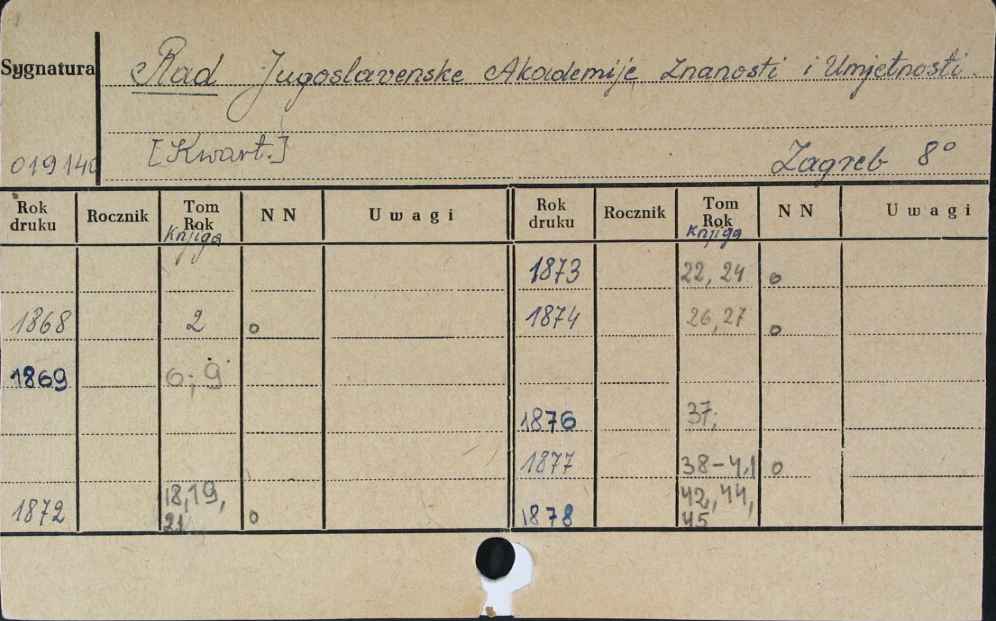 Sygnatura Rad Jugoslavenske Akademije Znanosti i Umjetnosti.
019140 [Kwart.] Zagreb 8°
Rok druku Rocznik Tom Rok Knjiga NN Uwagi Rok druku Rocznik Tom Rok Knjiga NN Uwagi
1873 22, 24 o
1868 2 o 1874 26, 27 o
1869 6; 9
1876 37;
1877 38-41 o
1872 18, 19, 21 o 1878 42, 44, 45